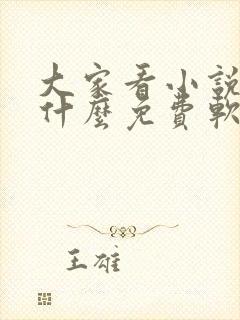 大家看小說
什麼免費軟
王雄